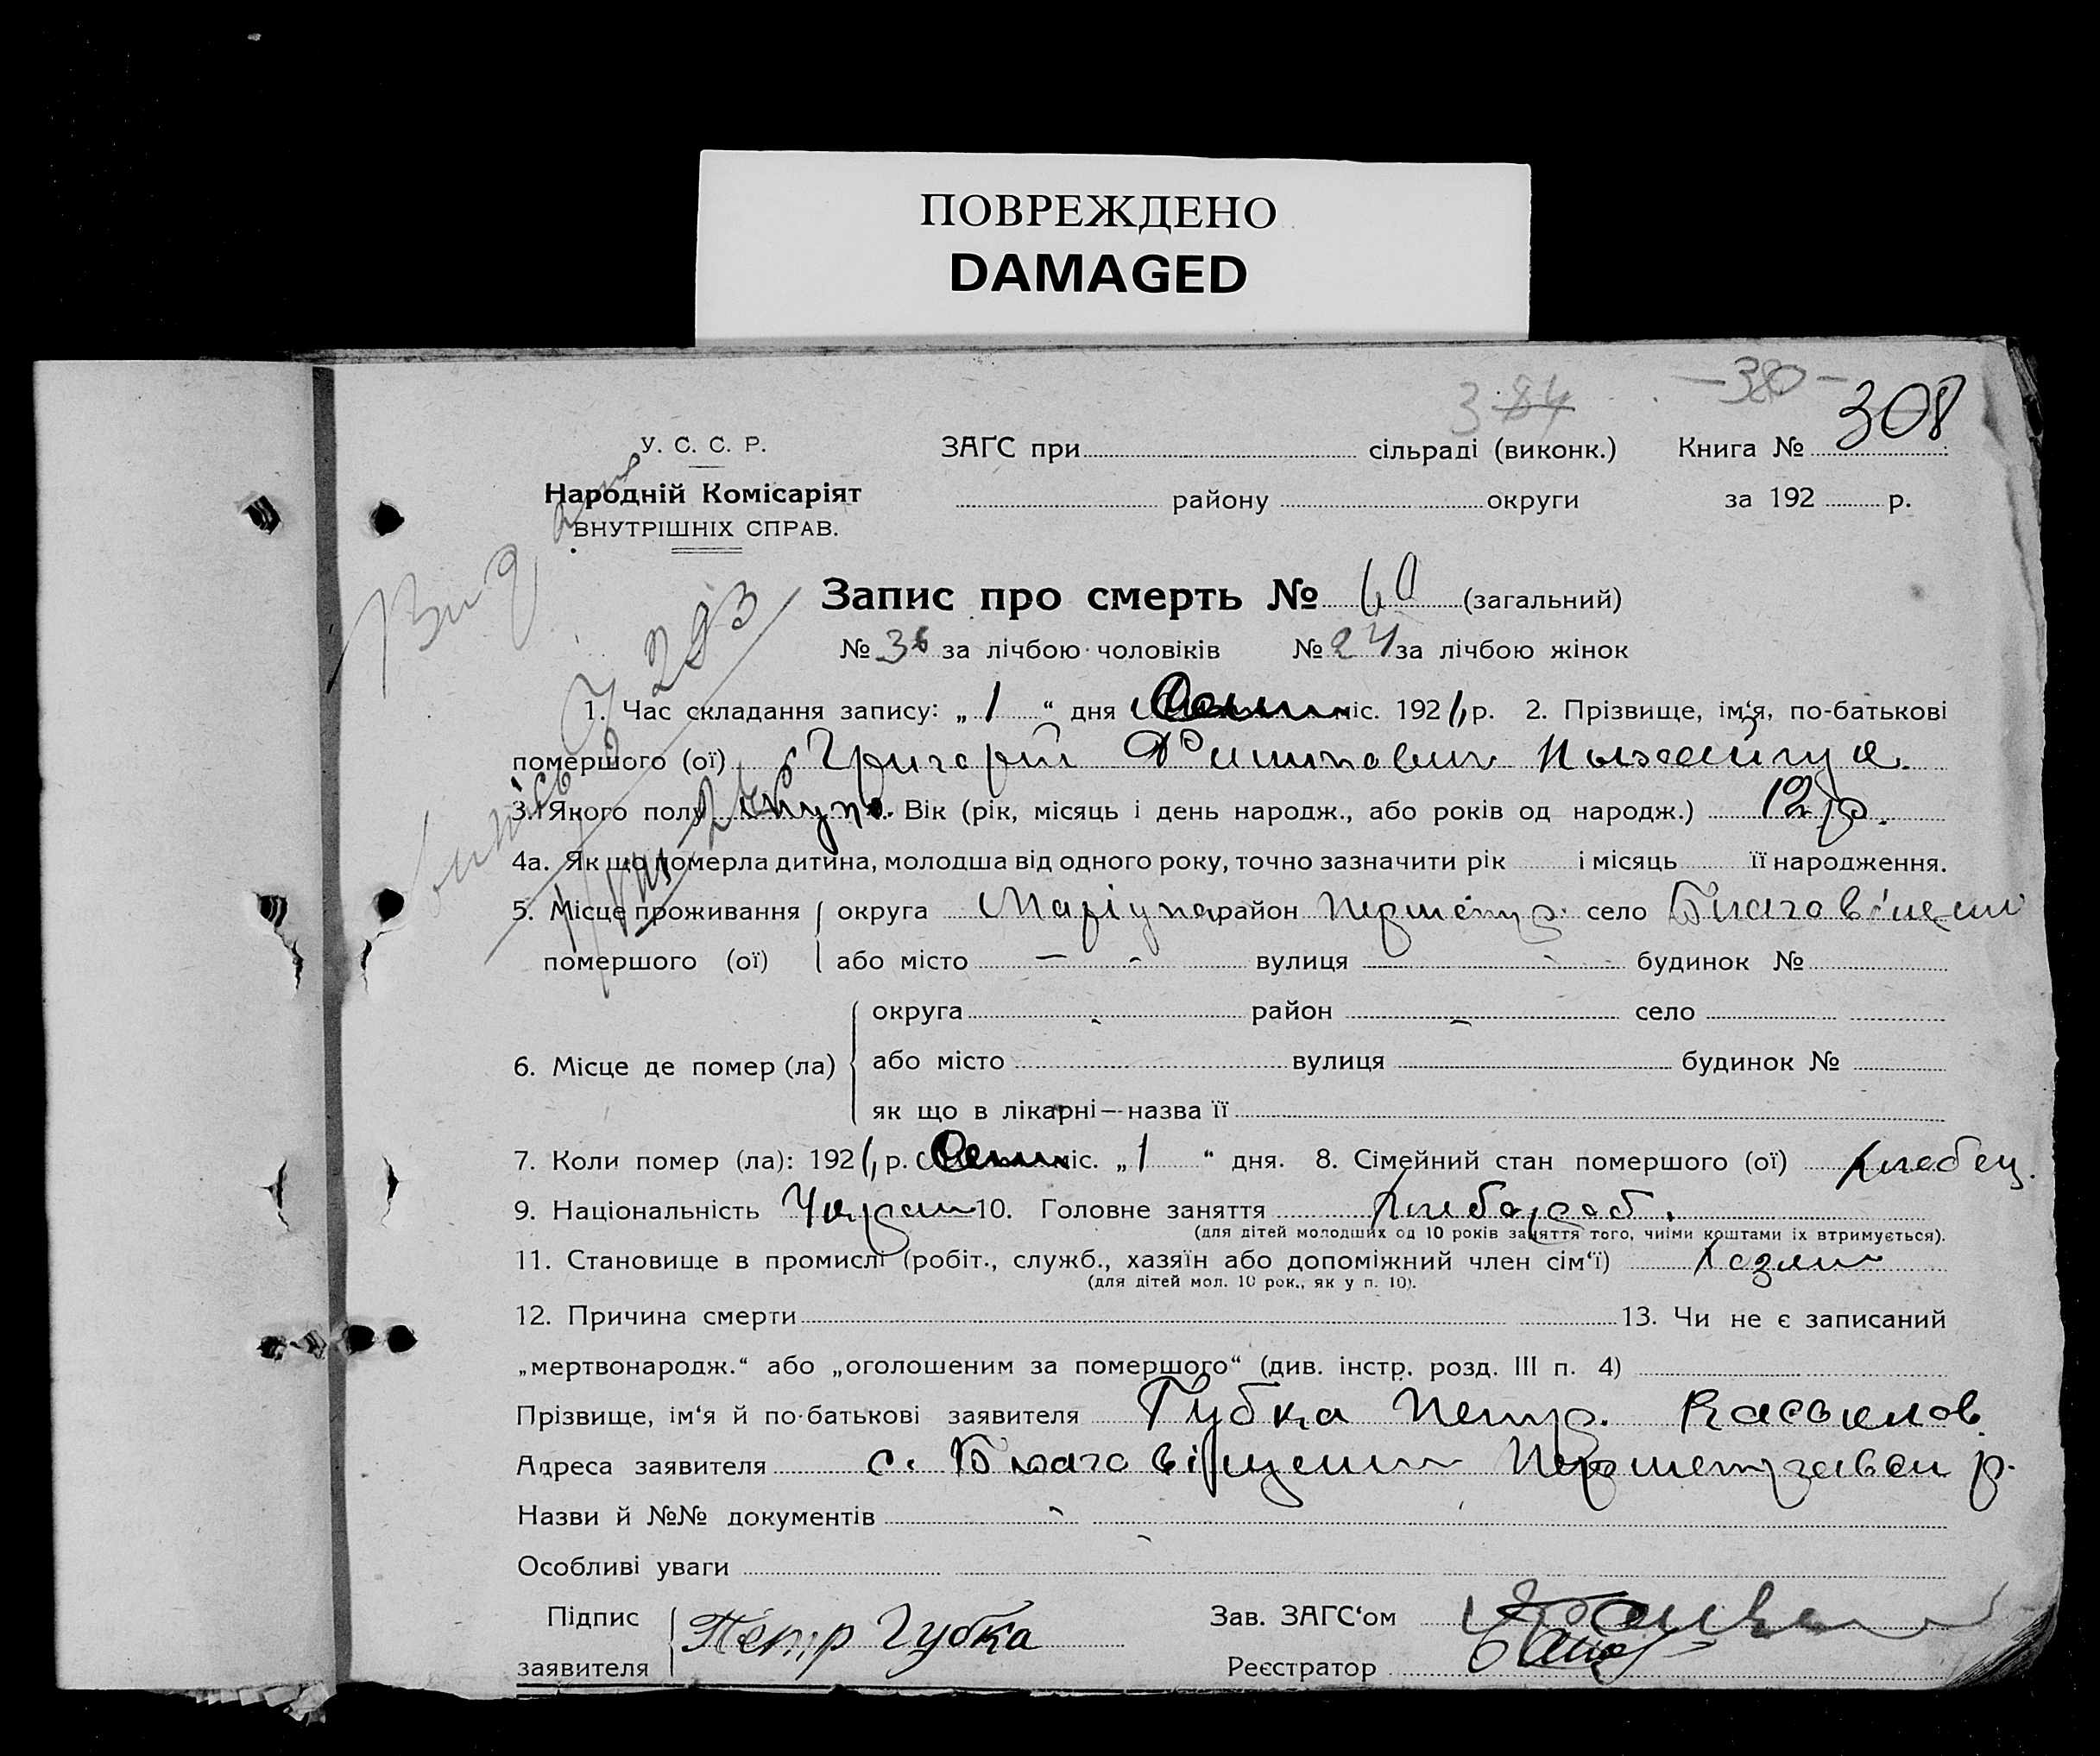 ПОВРЕЖДЕНО
DAMAGED
384 -380-
У. С. С. Р. ЗАГС при сільраді (виконк.) Книга № 308
Народній Комісаріят району округи за 192 р.
ВНУТРІШНІХ СПРАВ.
Запис про смерть № 60 (загальний)
№ 36 за лічбою чоловіків № 24 за лічбою жінок
1. Час складання запису: „ 1 “ дня міс. 192 р. 2. Прізвище, ім‘я, по-батькові
помершого (ої) Григорій
3. Якого полу Вік (рік, місяць і день народж., або років од народж.) 12 р.
4а. Як що померла дитина, молодша від одного року, точно зазначити рік і місяць її народження.
5. Місце проживання округа Маріуп район село Благовіщени
помершого (ої) або місто — вулиця будинок №
округа район село
6. Місце де помер (ла) або місто вулиця будинок №
як що в лікарні—назва її
7. Коли помер (ла): 192 р. міс. „ 1 “ дня. 8. Сімейний стан помершого (ої)
9. Національність 10. Головне заняття Хлібороб.
(для дітей молодших од 10 років заняття того, чиїми коштами їх втримується).
11. Становище в промислі (робіт., служб., хазяїн або допоміжний член сім‘ї)
(для дітей мол. 10 рок., як у п. 10).
12. Причина смерти 13. Чи не є записаний
„мертвонародж.“ або „оголошеним за помершого“ (див. інстр. розд. III п. 4)
Прізвище, ім‘я й по-батькові заявителя Губка Петр.
Адреса заявителя с. Благовіщени р.
Назви й №№ документів
Особливі уваги
Підпис Зав. ЗАГС‘ом
Петр Губка
заявителя Реєстратор